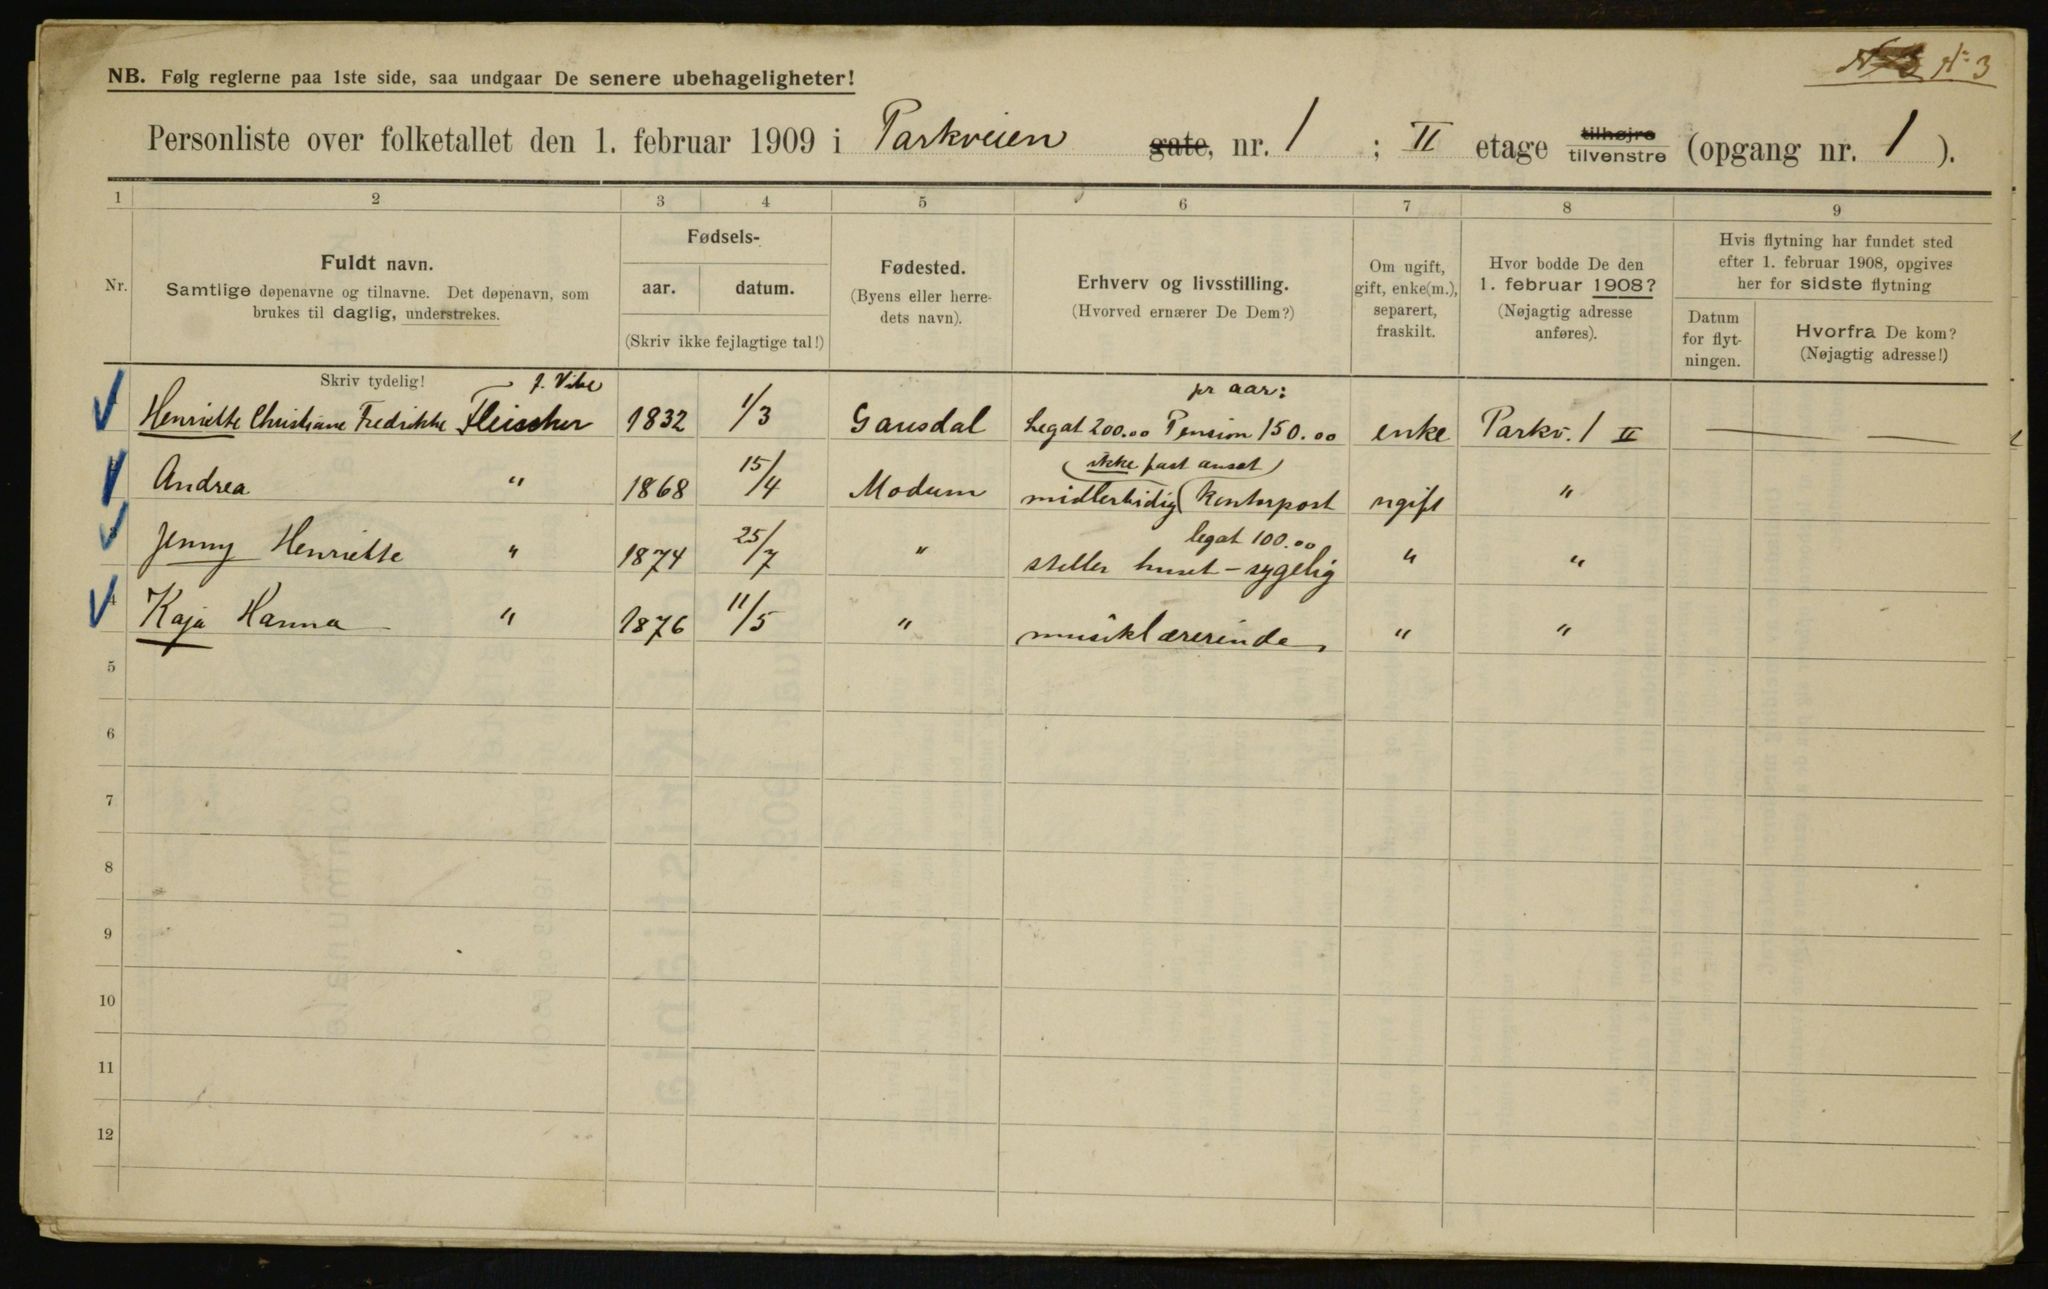 Nº 3
NB. Følg reglerne paa 1ste side, saa undgaar De senere ubehageligheter!
Personliste over folketallet den 1. februar 1909 i Parkveien gate, nr. 1 ; II etage tilhøjre tilvenstre (opgang nr. 1 ).
1 2 3 4 5 6 7 8 9
Nr.
Fuldt navn.
Samtlige døpenavne og tilnavne. Det døpenavn, som
brukes til daglig, understrekes.
Skriv tydelig!
Fødsels-
aar. datum.
(Skriv ikke fejlagtige tal!)
Fødested.
(Byens eller herre-
dets navn).
Erhverv og livsstilling.
(Hvorved ernærer De Dem?)
Om ugift,
gift, enke(m.),
separert,
fraskilt.
Hvor bodde De den
1. februar 1908?
(Nøjagtig adresse
anføres).
Hvis flytning har fundet sted
efter 1. februar 1908, opgives
her for sidste flytning
Datum
for flyt-
ningen.
Hvorfra De kom?
(Nøjagtig adresse!)
f. Vibe pr aar:
Henriette Christiane Fredrikke Fleischer 1832 1/3 Gausdal Legat 200.00 Pension 150.00 enke Parkv. 1 II — —
(ikke fast ansat)
Andrea " 1868 15/4 Modum midlertidig Kontorpost ugift "
legat 100.00
Jenny Henriette " 1874 25/7 " steller huset - sygelig " "
4 Kaja Hanna " 1876 11/5 " musiklærerinde " "
5
6
7
8
9
10
11
12